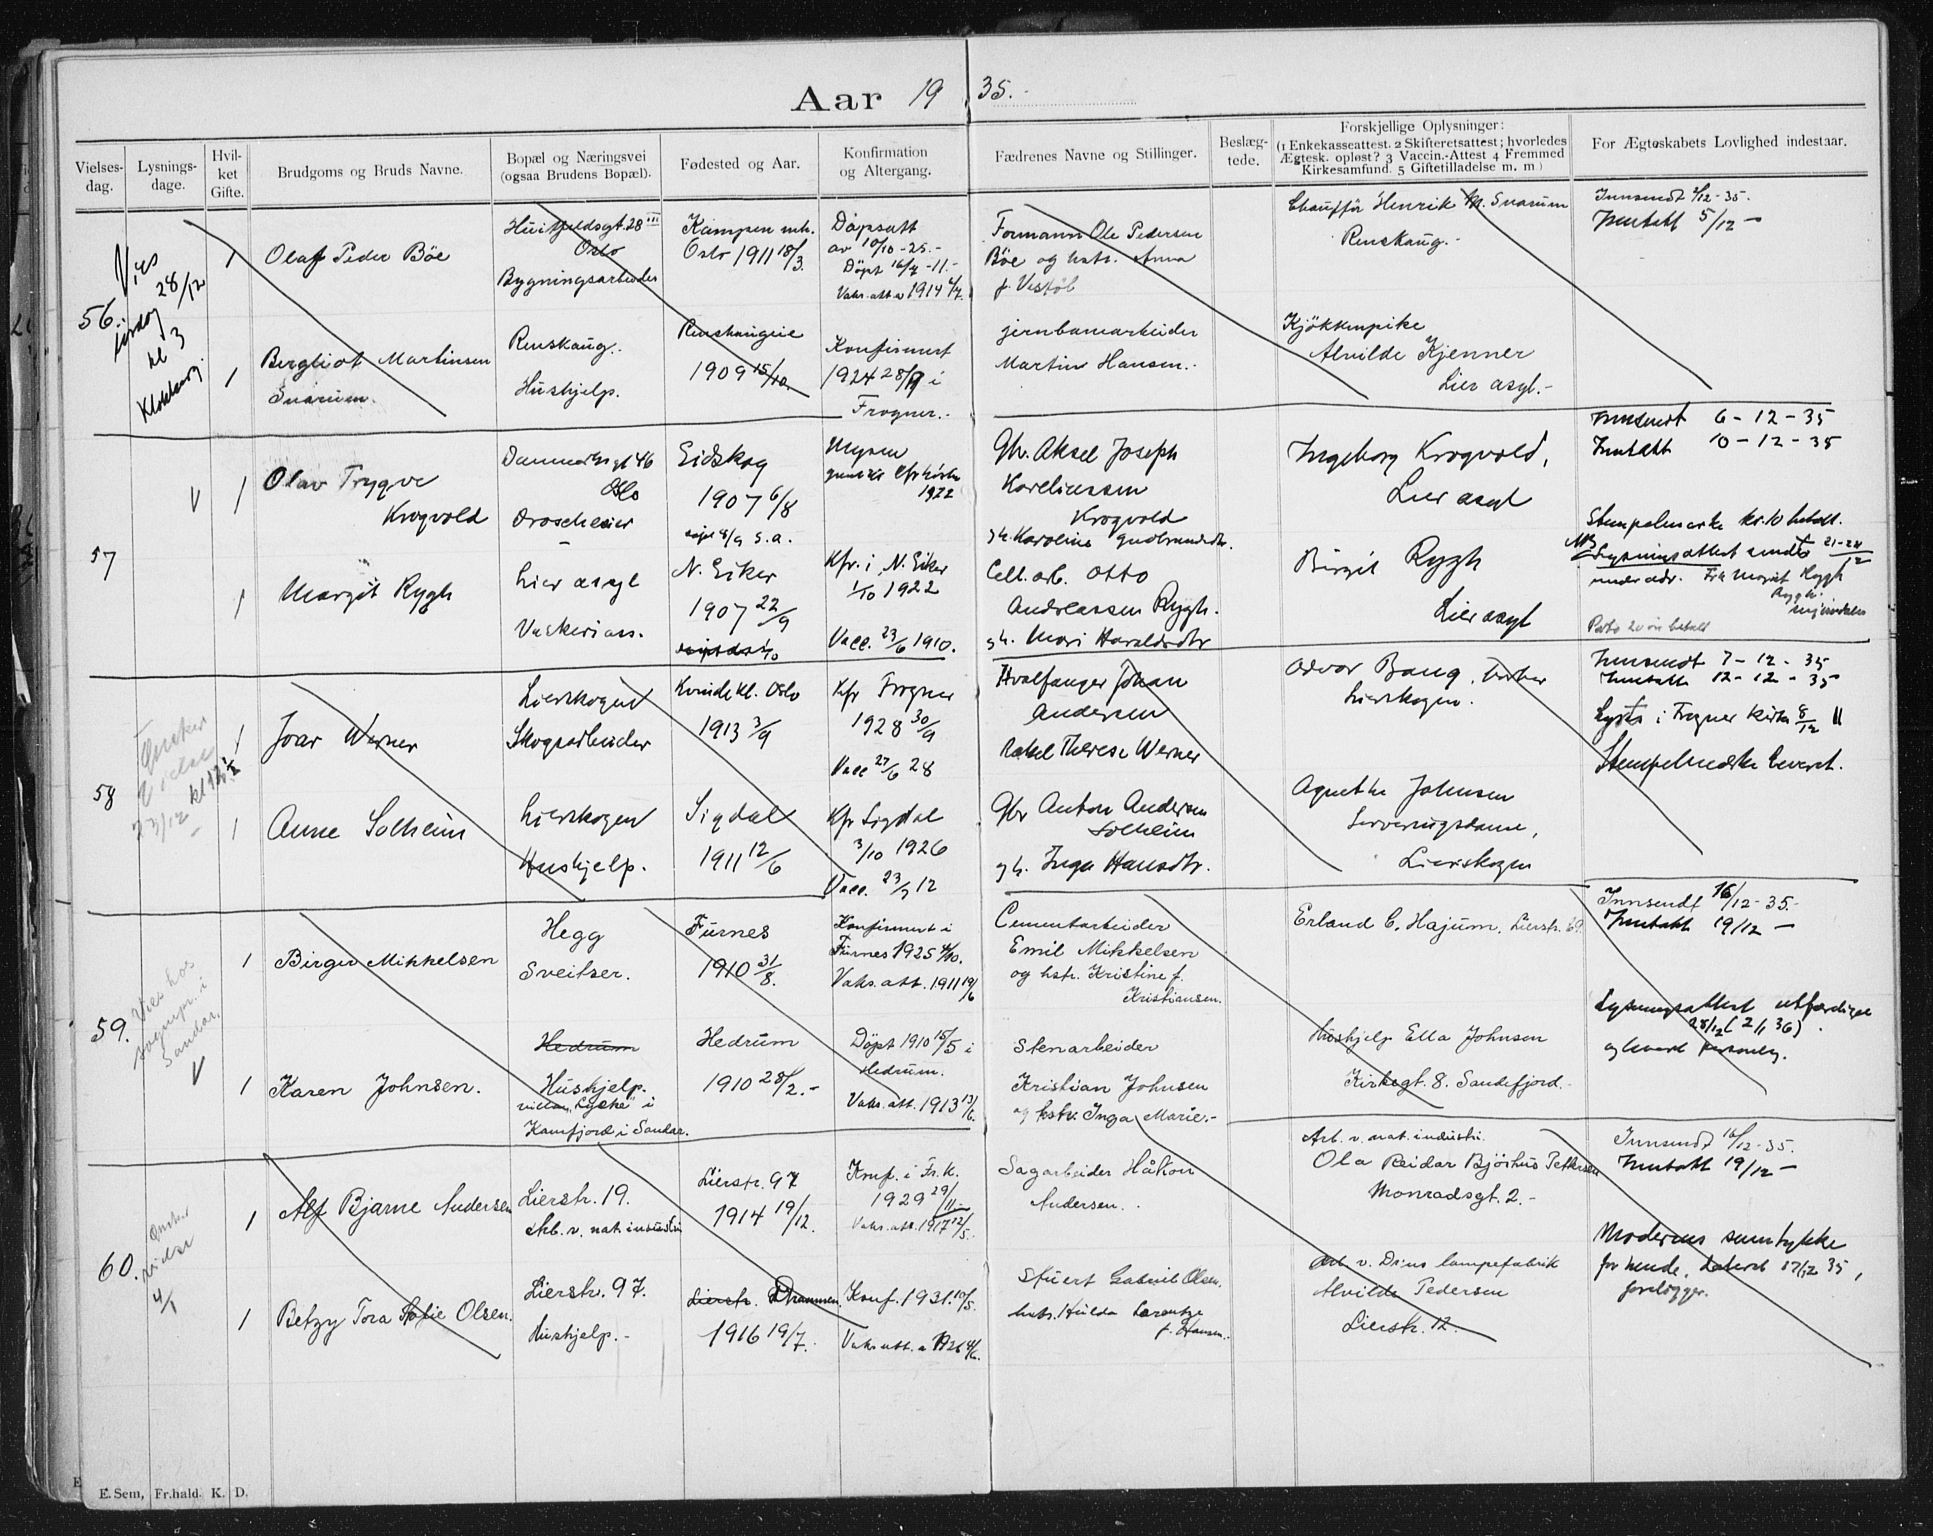 Aar 19 35.-
Vielses-
dag.
Lysnings-
dage.
Hvil-
ket
Gifte.
Brudgoms og Bruds Navne.
Bopæl og Næringsvei
(ogsaa Brudens Bopæl).
Fødested og Aar.
Konfirmation
og Altergang.
Fædrenes Navne og Stillinger.
Beslæg-
tede.
Forskjellige Oplysninger:
(1 Enkekasseattest. 2 Skifteretsattest; hvorledes
Ægtesk. opløst? 3 Vaccin.-Attest 4 Fremmed
Kirkesamfund. 5 Giftetilladelse m. m.)
For Ægteskabets Lovlighed indestaar.
56.
Vies
28/12
lørdag
kl 3
1
Olaf Peder Böe
Huitfeldsgt. 28 III
Oslo
Bygningsarbeider
Kampen mh.
Oslo 1911 18/3.
Döpsatt
av 10/10 -25.-
Döpt 16/4 -11.-
Vaks. att. 1914 4/7.
Formann Ole Pedersen
Böe og hstr. Anna
f. Vestöl
Chaufför Henrik M. Snarum
Renskaug.-
Innsendt 2/12 - 35.
Inntatt 5/12 -
1
Bergliot Martinsen
Snarum.
Renskaug.
Hushjelp.
Renskaugeie
1909 15/10
Konfirmert
1924 28/9 i
Frogner.-
jernbanearbeider
Martin Hansen.
Kjökkenpike
Alvilde Kjenner
Lier asyl.-
57
V
1
Olav Trygve
Krogvold
Danmarksgt 46
Oslo
Droscheeier
Eidskog
1907 6/8
döpt 8/9 s.a.
Mysen
1922
Gbr. Aksel Joseph
Koreliussen
Krogvold
gh. Karoline Gudbrandsdtr.
Ingeborg Krogvold,
Lier asyl
Innsendt 6 - 12 - 35
Inntatt 10 - 12 - 35
Stempelmerke kr. 10 betalt.
NB Lysningsattest sendt 21-24/12
under adr. Frk Margit Rygh
Rygh
Mjøndalen
Porto 20 øre betalt
1
Margit Rygh
Lier asyl
Vaskeriass.
N. Eiker
1907 22/9
Kfr. i N. Eiker
1/10 1922
Vacc. 23/6 1910.
Cell. arb. Otto
Andreassen Rygh.
gh. Mari Haraldsdtr
Birgit Rygh
Lier asyl
58
Ønsker
Vielse
23/12 kl 12½
1
Joar Werner
Lierskogen
Skogsarbeider
Kvindekl. Oslo
1913 3/9
Kfr Frogner
1928 30/9
Vacc 27/6 28
Hvalfanger Johan
Andersen
Rakel Therese Werner
Odvar Bang,
Lierskogen.
Innsendt 7 - 12 - 35
Inntatt 12 - 12 - 35
Lyst i Frogner kirke 8/12 11
Stempelmerke levert.
1
Anne Solheim
Lierskogen
Hushjelp.
Sigdal
1911 12/6
Kfr Sigdal
3/10 1926
Vacc. 23/7 12
Gbr Anton Andersen
Solheim
gh. Inga Hansdtr.
Agnethe Johnsen
Serveringsdame,
Lierskogen
59.
Vies hos
sognepr. i
Sandar.
V
1
Birger Mikkelsen
Hegg
Sveitser.
Furnes
1910 31/8.
Konfirmert i
Furnes 1925 4/10.
Vaks. att. 1911 19/6
Cementarbeider
Emil Mikkelsen
og hstr. Kristine f.
Kristiansen.
Erland C. Hajum, Lierstr. 69.
Innsendt 16/12 - 35.-
Inntatt 19/12 -
Lysningsattest utferdiget
28/12 (2/1 36).
og levert personlig.
1
Karen Johnsen.
Hedrum
Hushjelp.
villa "Lyske" i
Kamfjord i Sandar.
Hedrum
1910 28/2.-
Döpt 1910 15/5 i
Hedrum.
Vaks. att. 1913 13/6.
Stenarbeider
Kristian Johnsen
og hstr. Inga Marie.-
Hushjelp Ella Johnsen
Kirkegt. 8. Sandefjord.-
60.
Ønsker
vielse
4/1
1
Alf Bjarne Andersen
Lierstr. 19.
Arb. v. nat. industri
Lierstr. 97
1914 19/12.
Konf. i Fr.k.
1929 29/11
Vaks. att. 1917 12/5.
Sagarbeider Håkon
Andersen.
Arb. v. nat. industri.
Ola Reidar Bjöihus Pettersen
Monradsgt. 2.-
Innsendt 16/12 - 35.
Inntatt 19/12 -
Moderens samtykke
for hende, dateret 17/12 35,
foreligger.
1
Betzy Tora Sofie Olsen.
Lierstr. 97.
Hushjelp.-
Lierstr. Drammen.
1916 19/7.
Konf. 1931. 10/5.
Vaks. att. a 1926 4/6.
Stuert Gabriel Olsen.
hstr. Hulda Larentze
f. Hansen.
Arb. v. Dius lampefabrik
Alvilde Pedersen
Lierstr. 12.
E. Sem, Fr.hald. K. D.